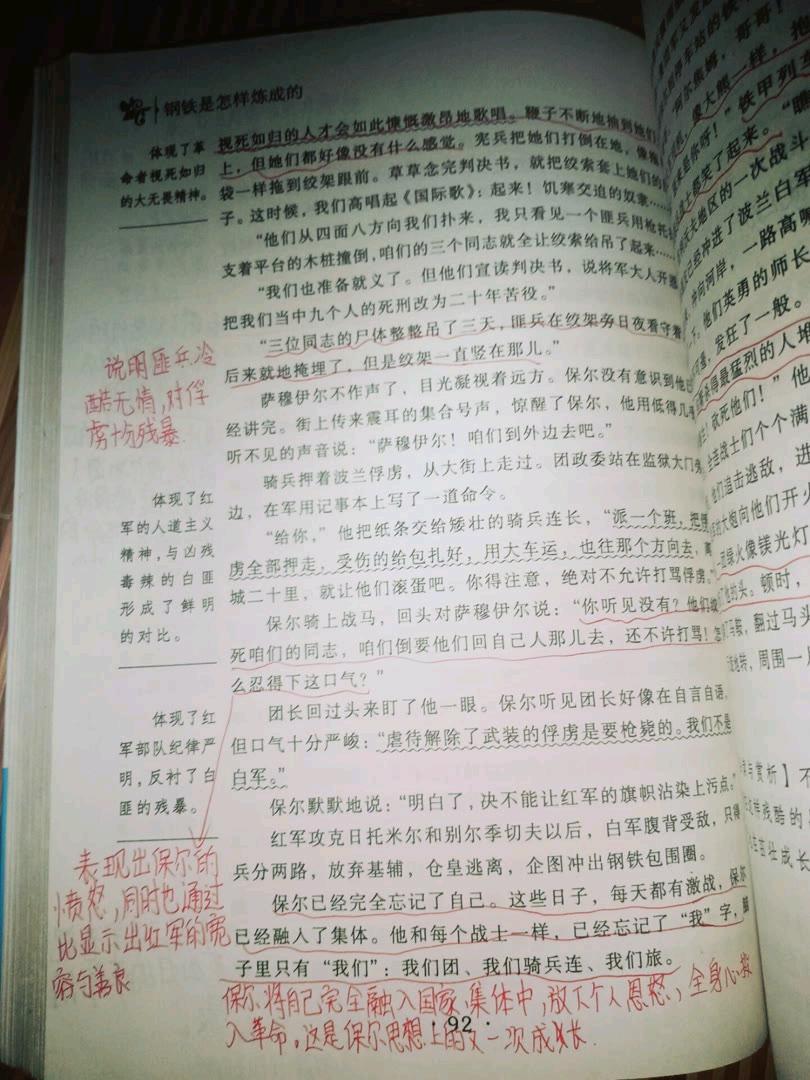 钢铁是怎样炼成的
视死如归的人才会如此慷慨激昂地歌唱。鞭子不断地抽到她们
上，但她们都好像没有什么感觉。宪兵把她们打倒在地，像拖
袋一样拖到绞架跟前。草草念完判决书，就把绞索套上她们的
子。这时候，我们高唱起《国际歌》：起来！饥寒交迫的奴隶……
“他们从四面八方向我们扑来，我只看见一个匪兵用枪托
支着平台的木桩撞倒，咱们的三个同志就全让绞索给吊了起来……
“我们也准备就义了。但他们宣读判决书，说将军大人开恩
把我们当中九个人的死刑改为二十年苦役。”
“三位同志的尸体整整吊了三天，匪兵在绞架旁日夜看守着
后来就地掩埋了，但是绞架一直竖在那儿。”
萨穆伊尔不作声了，目光凝视着远方。保尔没有意识到他已
经讲完。街上传来震耳的集合号声，惊醒了保尔，他用低得几乎
听不见的声音说：“萨穆伊尔！咱们到外边去吧。”
骑兵押着波兰俘虏，从大街上走过。团政委站在监狱大门旁
边，在军用记事本上写了一道命令。
“给你，”他把纸条交给矮壮的骑兵连长，“派一个班，把俘
虏全部押走，受伤的给包扎好，用大车运，也往那个方向去，离
城二十里，就让他们滚蛋吧。你得注意，绝对不允许打骂俘虏。”
保尔骑上战马，回头对萨穆伊尔说：“你听见没有？他们绞
死咱们的同志，咱们倒要他们回自己人那儿去，还不许打骂！怎
么忍得下这口气？”
团长回过头来盯了他一眼。保尔听见团长好像在自言自语，
但口气十分严峻：“虐待解除了武装的俘虏是要枪毙的。我们不是
白军。”
保尔默默地说：“明白了，决不能让红军的旗帜沾染上污点。”
红军攻克日托米尔和别尔季切夫以后，白军腹背受敌，只得
兵分两路，放弃基辅，仓皇逃离，企图冲出钢铁包围圈。
保尔已经完全忘记了自己。这些日子，每天都有激战，保尔
已经融入了集体。他和每个战士一样，已经忘记了“我”字，脑
子里只有“我们”：我们团、我们骑兵连、我们旅。
体现了革
命者视死如归
的大无畏精神。
说明匪兵冷
酷无情，对俘
虏十分残暴.
体现了红
军的人道主义
精神，与凶残
毒辣的白匪
形成了鲜明
的对比。
体现了红
军部队纪律严
明，反衬了白
匪的残暴。
表现出保尔的
愤怒，同时也通过
比显示出红军的宽
容与善良
保尔将自己完全融入国家、集体中，放下个人恩怨，全身心投
入革命。这是保尔思想上的又一次成长.
· 92 ·
阿尔焦姆，哥哥！
像大熊一样，抱
铁甲列车
都笑了起来。
地区的一次战斗
已经冲进了波兰白军
冲向河岸，一路高喊
下。他们英勇的师长
发狂了一般。
杀得最猛烈的人堆
敌死他们！”他
战士们个个满
们追击逃敌，进
的大炮向他们开火
绿火像镁光灯
的头。顿时，
马鞍，翻过马头
旋地转，周围一片
与赏析】不
样残酷的
茁壮成长